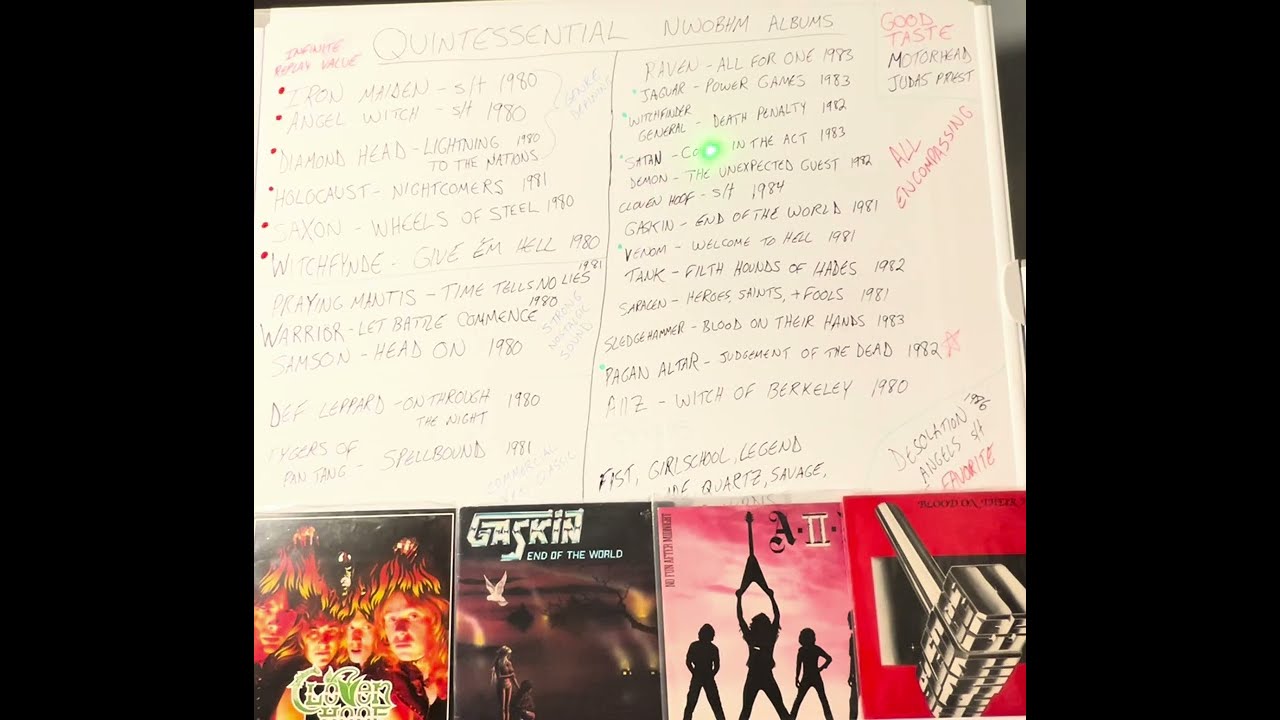 QUINTESSENTIAL NWOBHM ALBUMS
INFINITE
REPLAY VALUE
IRON MAIDEN - s/t 1980
ANGEL WITCH - s/t 1980
DIAMOND HEAD - LIGHTNING 1980
TO THE NATIONS
GENRE
DEFINING
HOLOCAUST - NIGHTCOMERS 1981
SAXON - WHEELS OF STEEL 1980
WITCHFYNDE - GIVE 'EM HELL 1980
PRAYING MANTIS - TIME TELLS NO LIES 1981
WARRIOR - LET BATTLE COMMENCE 1980
SAMSON - HEAD ON 1980
STRONG
NOSTALGIC
SOUND
DEF LEPPARD - ON THROUGH 1980
THE NIGHT
TYGERS OF
PAN TANG - SPELLBOUND 1981
COMMERCIAL
RAVEN - ALL FOR ONE 1983
JAGUAR - POWER GAMES 1983
WITCHFINDER
GENERAL - DEATH PENALTY 1982
SATAN - CO IN THE ACT 1983
DEMON - THE UNEXPECTED GUEST 1982
CLOVEN HOOF - s/t 1984
GASKIN - END OF THE WORLD 1981
VENOM - WELCOME TO HELL 1981
TANK - FILTH HOUNDS OF HADES 1982
SARACEN - HEROES, SAINTS, + FOOLS 1981
SLEDGEHAMMER - BLOOD ON THEIR HANDS 1983
PAGAN ALTAR - JUDGEMENT OF THE DEAD 1982
A II Z - WITCH OF BERKELEY 1980
FIST, GIRLSCHOOL, LEGEND
QUARTZ, SAVAGE,
GOOD
TASTE
MOTORHEAD
JUDAS PRIEST
ALL
ENCOMPASSING
DESOLATION 1986
ANGELS s/t
FAVORITE
CLOVEN
HOOF
GASKIN
END OF THE WORLD
NO FUN AFTER MIDNIGHT
A·II·
BLOOD ON THEIR